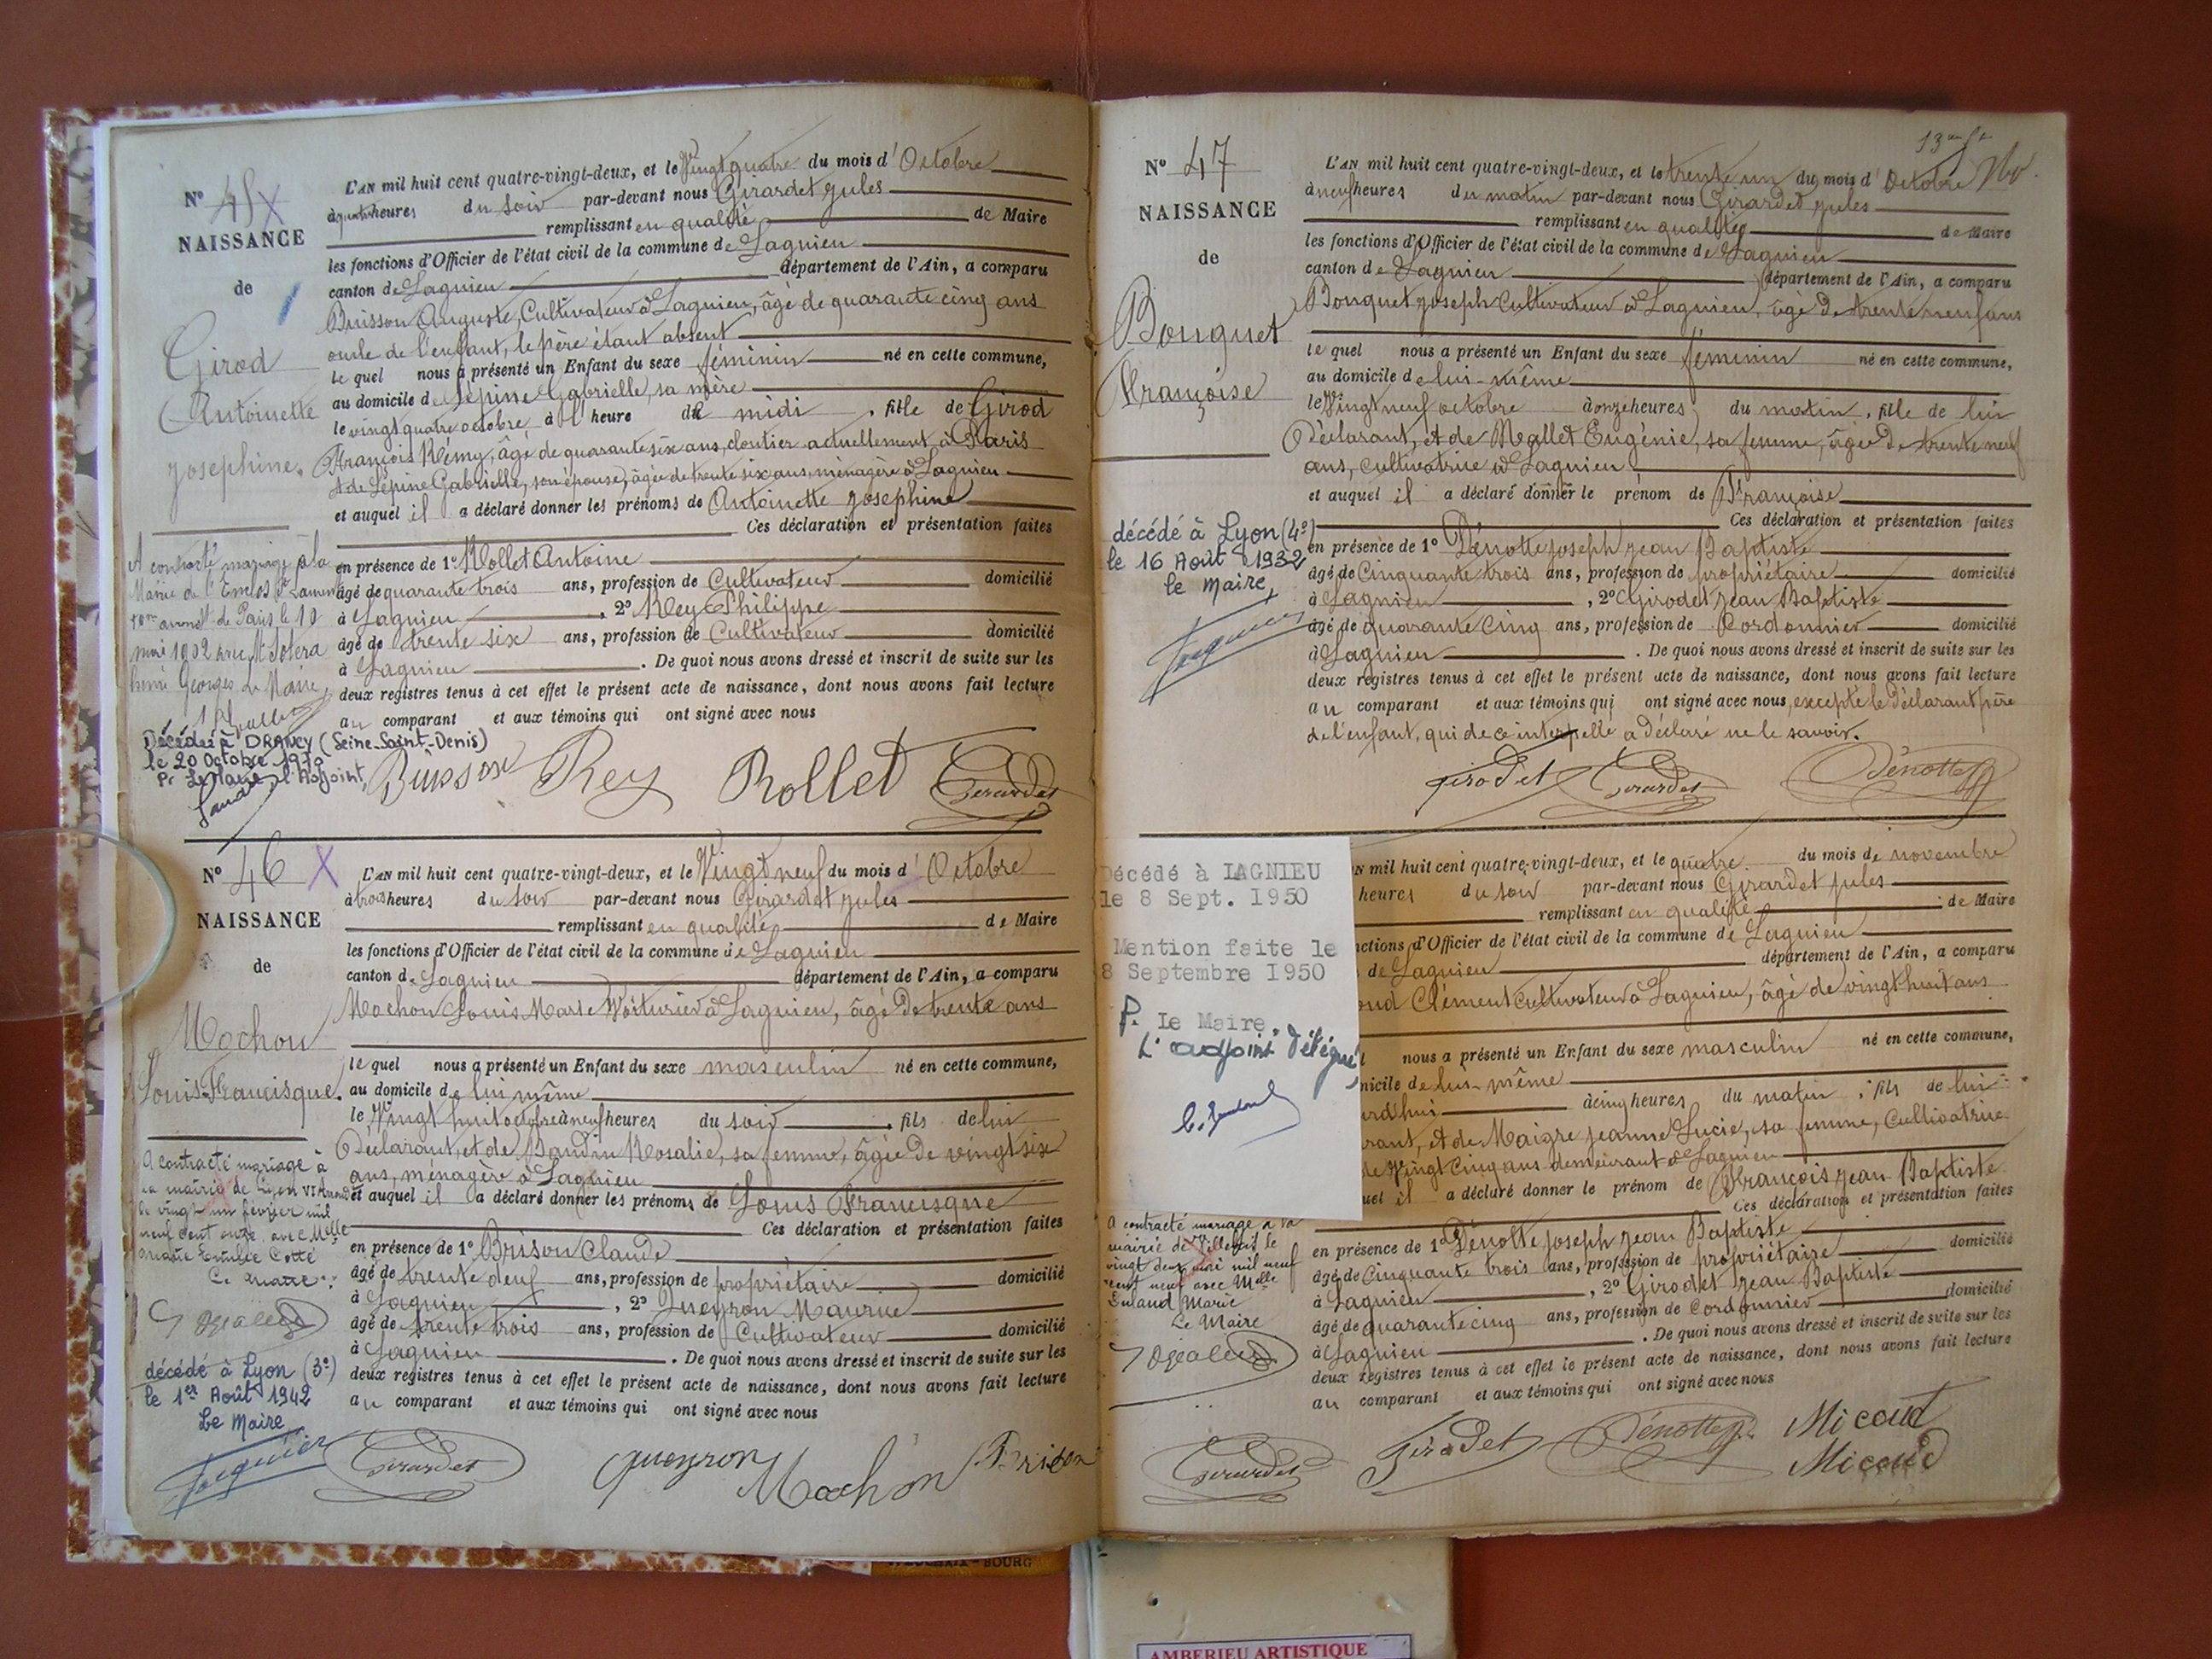 N° 45 X
NAISSANCE
de
Girod
Antoinette
Josephine.
L'AN mil huit cent quatre-vingt-deux, et le Vingt quatre du mois d'Octobre
à quatre heures du soir par-devant nous Girardet Jules
remplissant en qualité de Maire
les fonctions d'Officier de l'état civil de la commune de Lagnieu
canton de Lagnieu département de l'Ain, a comparu
Buisson Auguste, Cultivateur à Lagnieu, âgé de quarante cinq ans
oncle de l'enfant, le père étant absent
le quel nous a présenté un Enfant du sexe féminin né en cette commune,
au domicile de Lépine Gabrielle, sa mère
le vingt quatre octobre à l'heure de midi, fille de Girod
François Rémy, âgé de quarante six ans, cloutier actuellement à Paris
et de Lépine Gabrielle, son épouse, âgée de trente six ans, ménagère à Lagnieu
et auquel il a déclaré donner les prénoms de Antoinette Josephine
Ces déclaration et présentation faites
en présence de 1° Rollet Antoine
âgé de quarante trois ans, profession de Cultivateur domicilié
à Lagnieu, 2° Rey Philippe
âgé de trente six ans, profession de Cultivateur domicilié
à Lagnieu. De quoi nous avons dressé et inscrit de suite sur les
deux registres tenus à cet effet le présent acte de naissance, dont nous avons fait lecture
au comparant et aux témoins qui ont signé avec nous
A contracté mariage à la
Mairie de l'Enclos St Laurent
10me arrondt de Paris le 10
mai 1902 avec Mr
Georges Le Maire,
Décédée à DRANCY (Seine-Saint-Denis)
le 20 Octobre 1970
Pr Le Maire, l'Adjoint,
Buisson Rey Rollet Girardet
N° 46 X
NAISSANCE
de
Mochon
Louis Francisque.
L'AN mil huit cent quatre-vingt-deux, et le Vingt neuf du mois d'Octobre
à trois heures du soir par-devant nous Girardet Jules
remplissant en qualité de Maire
les fonctions d'Officier de l'état civil de la commune de Lagnieu
canton de Lagnieu département de l'Ain, a comparu
Mochon Louis Marie Voiturier à Lagnieu, âgé de trente ans
le quel nous a présenté un Enfant du sexe masculin né en cette commune,
au domicile de lui même
le Vingt huit octobre à neuf heures du soir, fils de lui
Déclarant, et de Baudin Rosalie, sa femme, âgée de vingt six
ans, ménagère à Lagnieu
et auquel il a déclaré donner les prénoms de Louis Francisque
Ces déclaration et présentation faites
en présence de 1° Brison Claude
âgé de trente neuf ans, profession de propriétaire domicilié
à Lagnieu, 2° Queyron Maurice
âgé de trente trois ans, profession de Cultivateur domicilié
à Lagnieu. De quoi nous avons dressé et inscrit de suite sur les
deux registres tenus à cet effet le présent acte de naissance, dont nous avons fait lecture
au comparant et aux témoins qui ont signé avec nous
A contracté mariage à
la mairie de Lyon VI Arrondt
le vingt un février mil
neuf cent onze avec Melle
Marie Emilie Cotte
Le Maire
décédé à Lyon (3e)
le 1er Août 1942
Le Maire
Girardet Queyron Mochon Brison
N° 47
NAISSANCE
de
Bouquet
Françoise
L'AN mil huit cent quatre-vingt-deux, et le trente un du mois d'Octobre
à neuf heures du matin par-devant nous Girardet Jules
remplissant en qualité de Maire
les fonctions d'Officier de l'état civil de la commune de Lagnieu
canton de Lagnieu département de l'Ain, a comparu
Bouquet Joseph Cultivateur à Lagnieu, âgé de trente neuf ans
le quel nous a présenté un Enfant du sexe féminin né en cette commune,
au domicile de lui-même
le Vingt neuf octobre à onze heures du matin, fille de lui
Déclarant, et de Mallet Eugénie, sa femme, âgée de trente neuf
ans, cultivatrice à Lagnieu
et auquel il a déclaré donner le prénom de Françoise
Ces déclaration et présentation faites
en présence de 1° Dénotte Joseph Jean Baptiste
âgé de Cinquante trois ans, profession de propriétaire domicilié
à Lagnieu, 2° Girodet Jean Baptiste
âgé de quarante Cinq ans, profession de Cordonnier domicilié
à Lagnieu. De quoi nous avons dressé et inscrit de suite sur les
deux registres tenus à cet effet le présent acte de naissance, dont nous avons fait lecture
au comparant et aux témoins qui ont signé avec nous, excepté le déclarant père
de l'enfant, qui de ce interpellé a déclaré ne le savoir.
décédé à Lyon (4e)
le 16 Août 1932
le Maire,
Girodet Girardet Dénotte
Décédé à LAGNIEU
le 8 Sept. 1950
Mention faite le
8 Septembre 1950
P. Le Maire,
L'adjoint délégué
AN mil huit cent quatre-vingt-deux, et le quatre du mois de novembre
heures du soir par-devant nous Girardet Jules
remplissant en qualité de Maire
nctions d'Officier de l'état civil de la commune de Lagnieu
de Lagnieu département de l'Ain, a comparu
oud Clément Cultivateur à Lagnieu, âgé de vingt huit ans
nous a présenté un Enfant du sexe masculin né en cette commune,
micile de lui-même
urd'hui à cinq heures du matin, fils de lui
rant, et de Maigre Jeanne Lucie, sa femme, Cultivatrice
de Vingt Cinq ans demeurant à Lagnieu
uel il a déclaré donner le prénom de François Jean Baptiste
Ces déclaration et présentation faites
en présence de 1° Dénotte Joseph Jean Baptiste
âgé de Cinquante trois ans, profession de propriétaire domicilié
à Lagnieu, 2° Girodet Jean Baptiste
âgé de quarante cinq ans, profession de Cordonnier domicilié
à Lagnieu. De quoi nous avons dressé et inscrit de suite sur les
deux registres tenus à cet effet le présent acte de naissance, dont nous avons fait lecture
au comparant et aux témoins qui ont signé avec nous
A contracté mariage à la
mairie de le
vingt deux mai mil neuf
cent neuf avec Melle
Marie
Le Maire
Girardet Girodet Dénotte Micoud
Micoud
AMBERIEU ARTISTIQUE